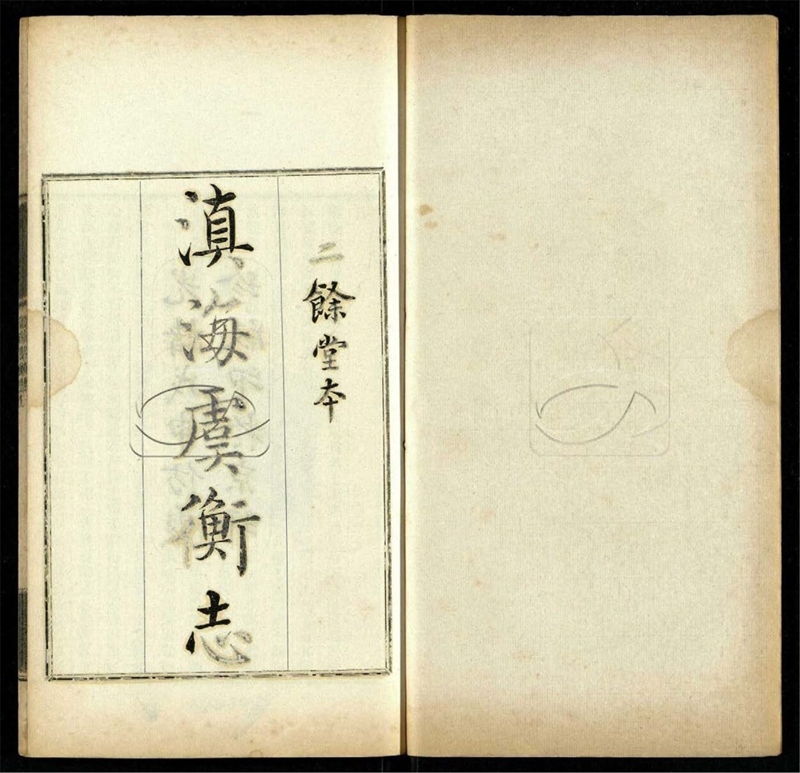 二餘堂本
滇海虞衡志